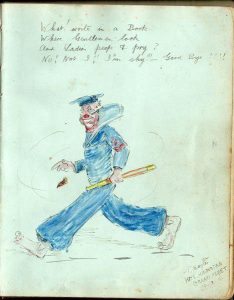 What! write in a Book
Where Gentlemen look
And Ladies peep & pry?
No! Not I! I'm shy! Good Bye!!!!